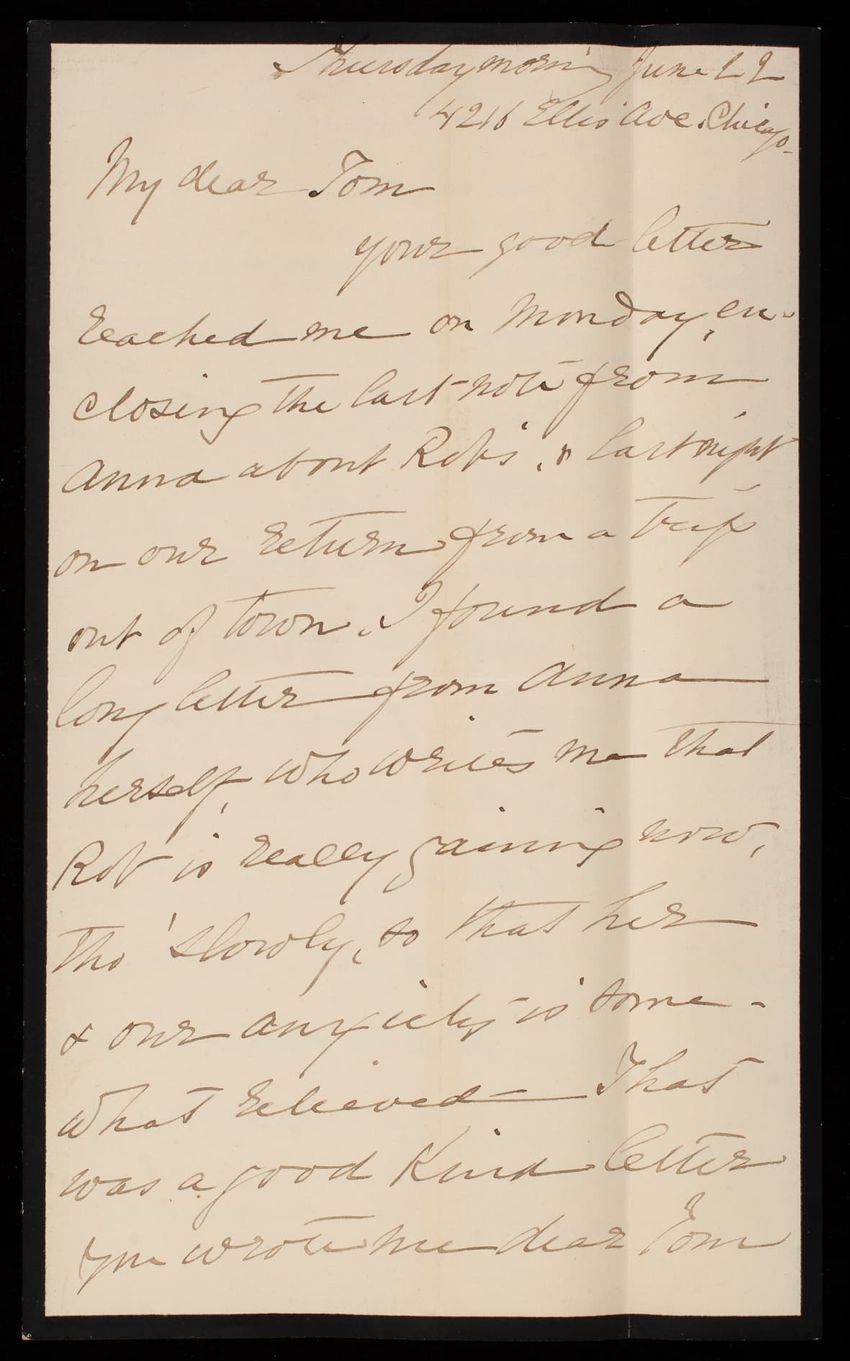 Thursday morning June 22
4216 Ellis Ave. Chicago.
My dear Tom
your good letter
reached me on Monday, en-
closing the last note from
Anna about Rob's, & last night
on our return from a trip
out of town, I found a
long letter from Anna
herself, who writes me that
Rob is really gaining now,
tho' slowly, so that her
& our anxiety is some-
what relieved That
was a good kind letter
you wrote me dear Tom